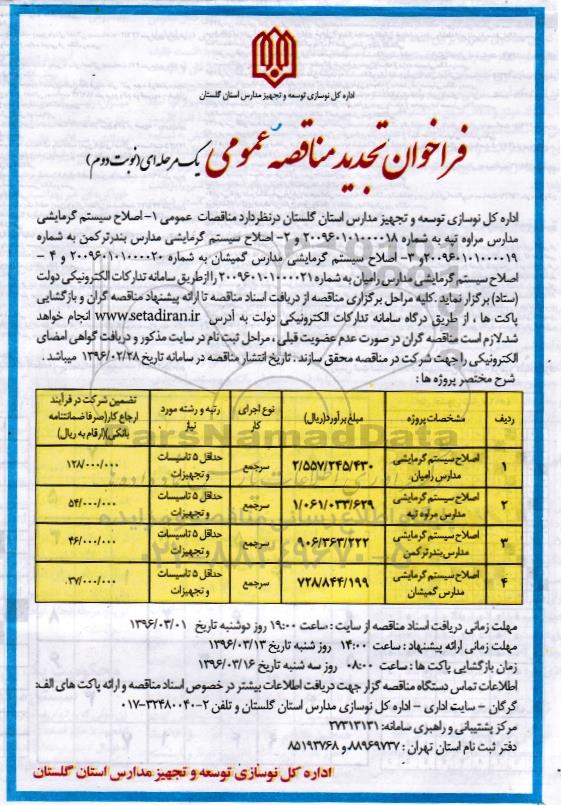 اداره کل نوسازی توسعه و تجهیز مدارس استان گلستان
فراخوان تجدید مناقصه عمومی یک مرحله ای (نوبت دوم)
اداره کل نوسازی توسعه و تجهیز مدارس استان گلستان درنظردارد مناقصات عمومی ۱- اصلاح سیستم گرمایشی
مدارس مراوه تپه به شماره ۲۰۰۹۶۰۱۰۱۰۰۰۰۱۸ و ۲- اصلاح سیستم گرمایشی مدارس بندرترکمن به شماره
۲۰۰۹۶۰۱۰۱۰۰۰۰۱۹و ۳- اصلاح سیستم گرمایشی مدارس گمیشان به شماره ۲۰۰۹۶۰۱۰۱۰۰۰۰۲۰ و ۴ -
اصلاح سیستم گرمایشی مدارس رامیان به شماره ۲۰۰۹۶۰۱۰۱۰۰۰۰۲۱ را ازطریق سامانه تدارکات الکترونیکی دولت
(ستاد) برگزار نماید .کلیه مراحل برگزاری مناقصه از دریافت اسناد مناقصه تا ارائه پیشنهاد مناقصه گران و بازگشایی
پاکت ها ، از طریق درگاه سامانه تدارکات الکترونیکی دولت به آدرس www.setadiran.ir انجام خواهد
شد.لازم است مناقصه گران در صورت عدم عضویت قبلی ، مراحل ثبت نام در سایت مذکور و دریافت گواهی امضای
الکترونیکی را جهت شرکت در مناقصه محقق سازند . تاریخ انتشار مناقصه در سامانه تاریخ ۱۳۹۶/۰۲/۲۸ میباشد .
شرح مختصر پروژه ها :
ردیف | مشخصات پروژه | مبلغ برآورد(ریال) | نوع اجرای کار | رتبه و رشته مورد نیاز | تضمین شرکت در فرآیند ارجاع کار(صرفا ضمانتنامه بانکی)(ارقام به ریال)
۱ | اصلاح سیستم گرمایشی مدارس رامیان | ۲/۵۵۷/۲۴۵/۴۳۰ | سرجمع | حداقل ۵ تاسیسات و تجهیزات | ۱۲۸/۰۰۰/۰۰۰
۲ | اصلاح سیستم گرمایشی مدارس مراوه تپه | ۱/۰۶۱/۰۳۳/۶۲۹ | سرجمع | حداقل ۵ تاسیسات و تجهیزات | ۵۴/۰۰۰/۰۰۰
۳ | اصلاح سیستم گرمایشی مدارس بندرترکمن | ۹۰۶/۳۶۳/۲۲۲ | سرجمع | حداقل ۵ تاسیسات و تجهیزات | ۴۶/۰۰۰/۰۰۰
۴ | اصلاح سیستم گرمایشی مدارس گمیشان | ۷۲۸/۸۴۴/۱۹۹ | سرجمع | حداقل ۵ تاسیسات و تجهیزات | ۳۷/۰۰۰/۰۰۰
ParsNamadData
مهلت زمانی دریافت اسناد مناقصه از سایت : ساعت ۱۹:۰۰ روز دوشنبه تاریخ ۱۳۹۶/۰۳/۰۱
مهلت زمانی ارائه پیشنهاد : ساعت ۱۴:۰۰ روز شنبه تاریخ ۱۳۹۶/۰۳/۱۳
زمان بازگشایی پاکت ها : ساعت ۰۸:۰۰ روز سه شنبه تاریخ ۱۳۹۶/۰۳/۱۶
اطلاعات تماس دستگاه مناقصه گزار جهت دریافت اطلاعات بیشتر در خصوص اسناد مناقصه و ارائه پاکت های الف:
گرگان - سایت اداری - اداره کل نوسازی مدارس استان گلستان و تلفن ۲-۳۲۴۸۰۰۴۰-۰۱۷
مرکز پشتیبانی و راهبری سامانه: ۲۷۳۱۳۱۳۱
دفتر ثبت نام استان تهران : ۸۸۹۶۹۷۳۷ و ۸۵۱۹۳۷۶۸
اداره کل نوسازی توسعه و تجهیز مدارس استان گلستان